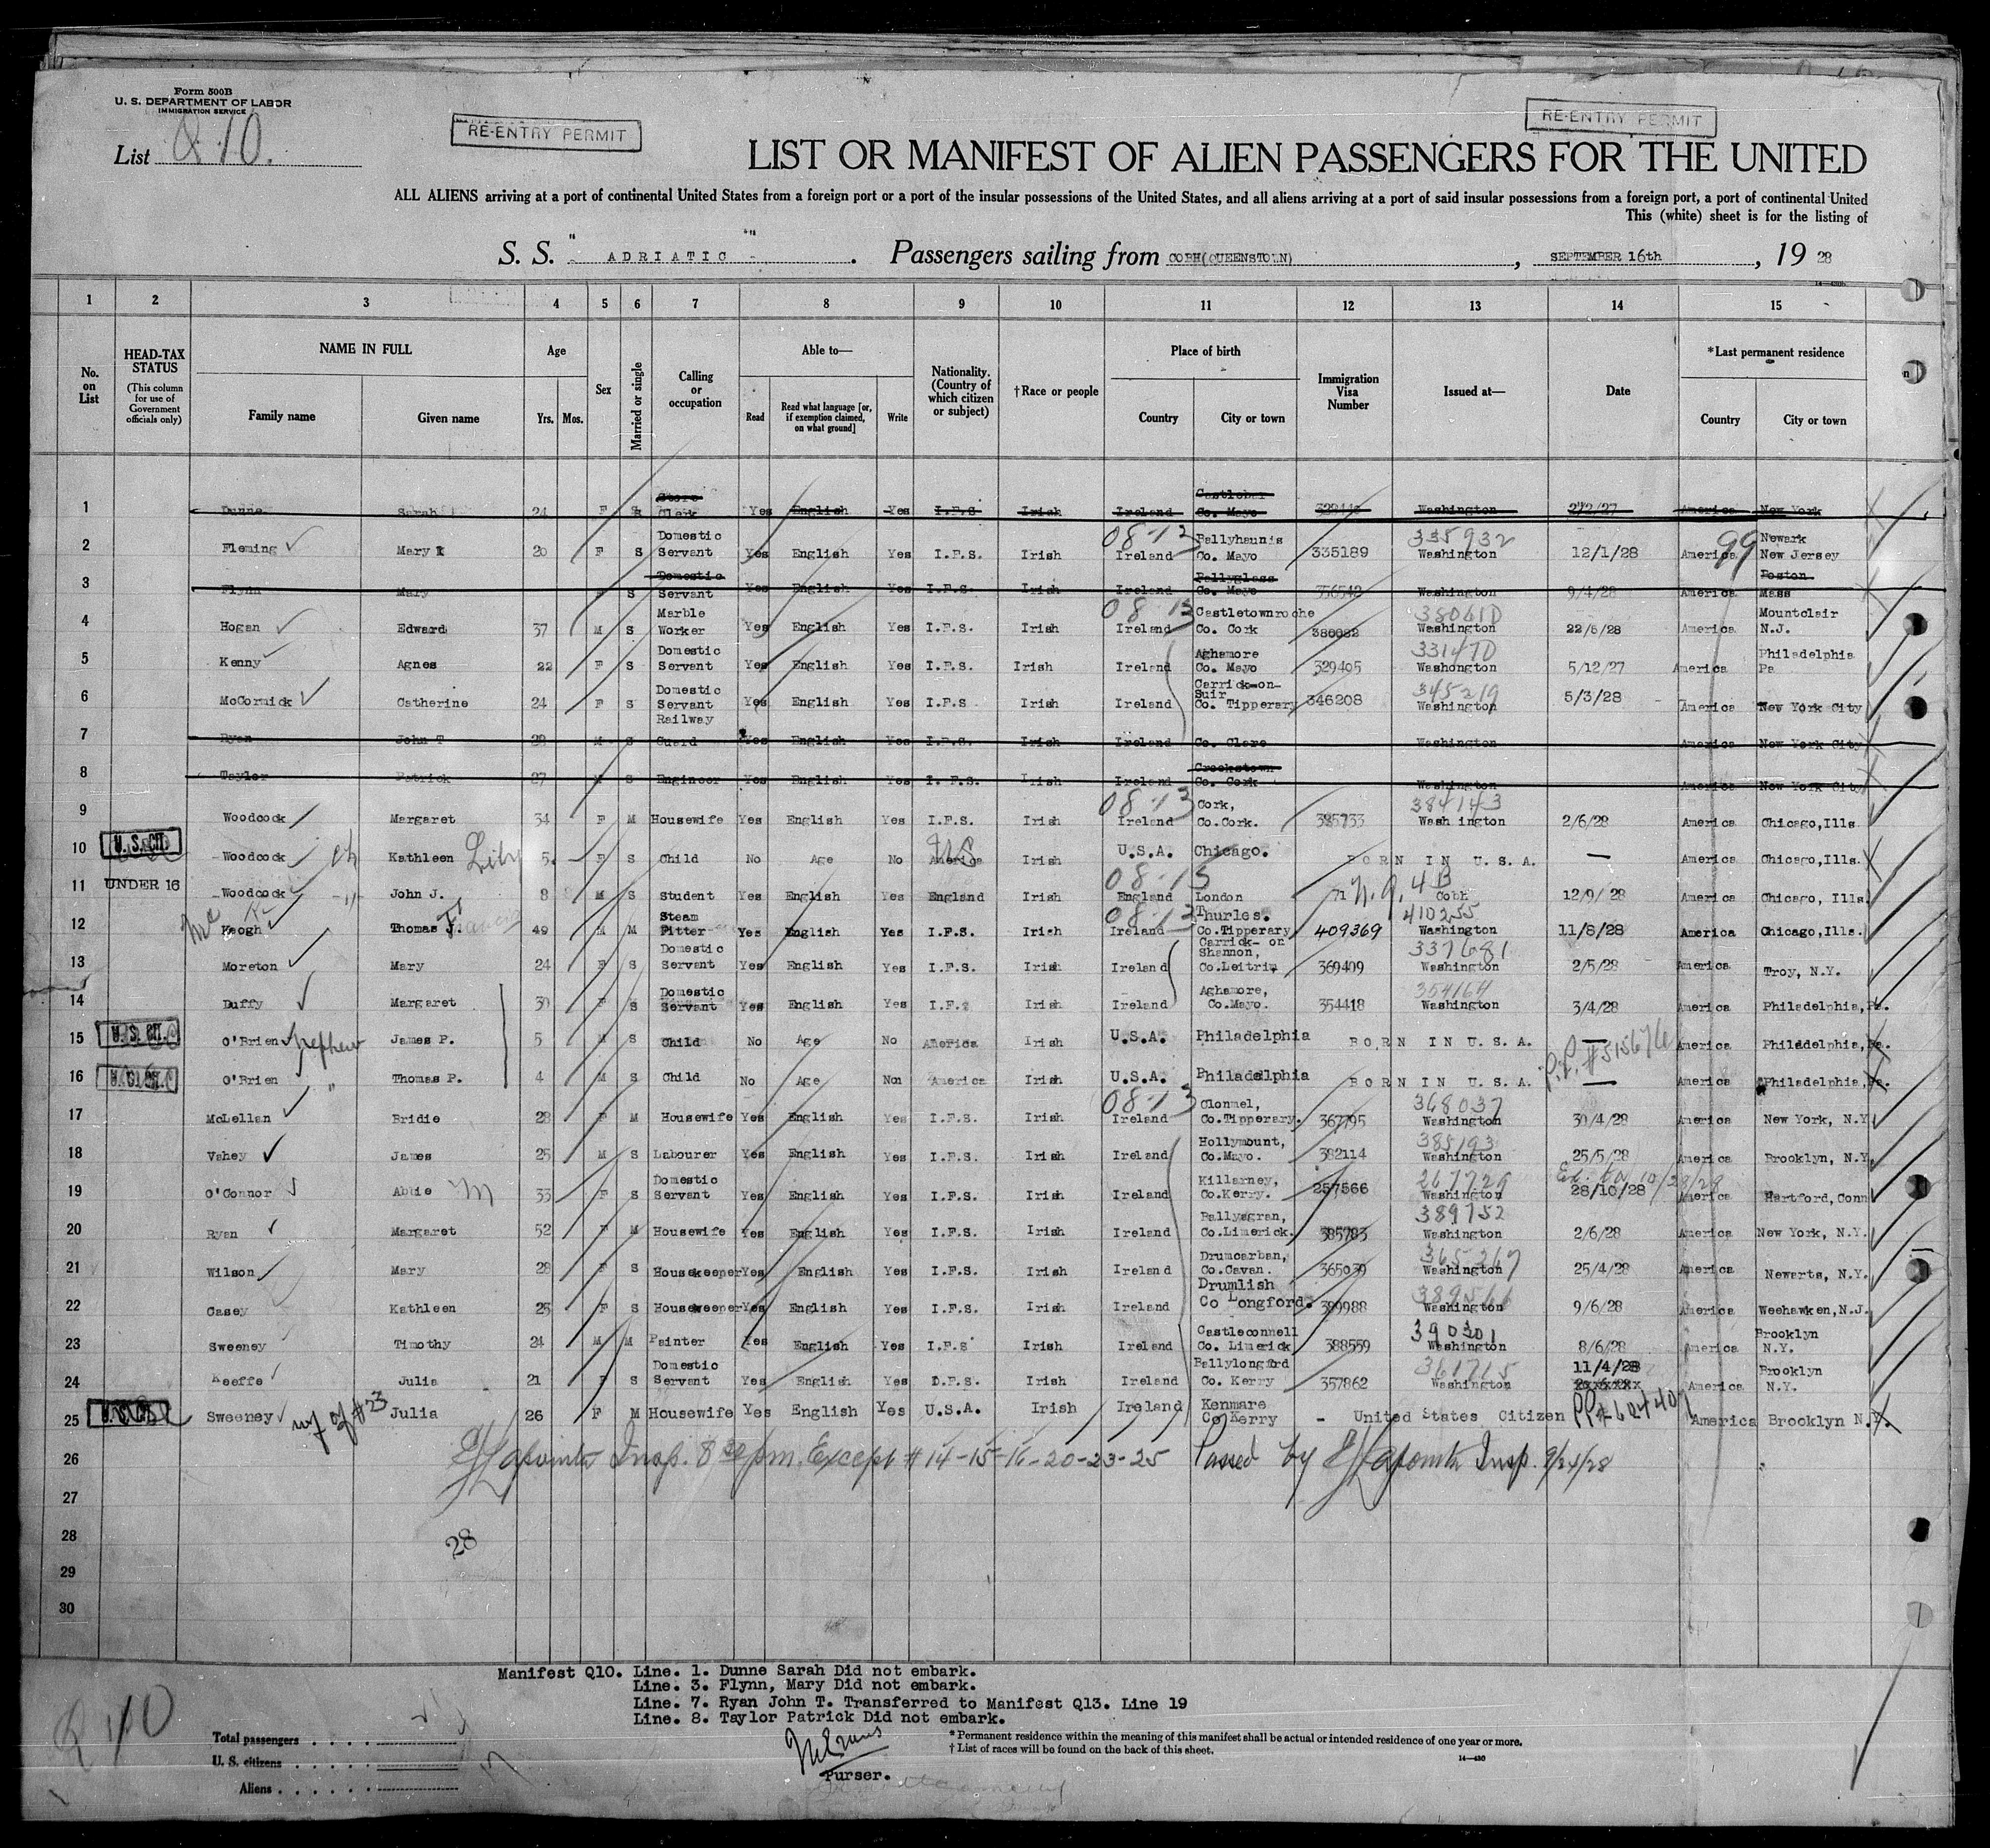 Form 500B
U. S. DEPARTMENT OF LABOR
IMMIGRATION SERVICE
List Q 10.
RE-ENTRY PERMIT
RE-ENTRY PERMIT
LIST OR MANIFEST OF ALIEN PASSENGERS FOR THE UNITED
ALL ALIENS arriving at a port of continental United States from a foreign port or a port of the insular possessions of the United States, and all aliens arriving at a port of said insular possessions from a foreign port, a port of continental United
This (white) sheet is for the listing of
S. S. "ADRIATIC" . Passengers sailing from COBH(QUEENSTOWN) , SEPTEMBER 16th , 19 28
1 2 3 4 5 6 7 8 9 10 11 12 13 14 15
No. on List
HEAD-TAX STATUS (This column for use of Government officials only)
NAME IN FULL Family name Given name
Age Yrs. Mos.
Sex
Married or single
Calling or occupation
Able to— Read Read what language [or, if exemption claimed, on what ground] Write
Nationality. (Country of which citizen or subject)
†Race or people
Place of birth Country City or town
Immigration Visa Number
Issued at—
Date
*Last permanent residence Country City or town
1 Dunne Sarah 24 F S Store Clerk Yes English Yes I.F.S Irish Ireland Castlebar Co. Mayo Washington America New York
2 Fleming Mary 20 F S Domestic Servant Yes English Yes I.F.S. Irish 08-13 Ireland Ballyhaunis Co. Mayo 335189 335932 Washington 12/1/28 America 99 Newark New Jersey
3 Flynn Mary F S Domestic Servant Yes English Yes I.F.S. Irish Ireland Ballyglass Co. Mayo 356542 Washington 9/4/28 America Boston Mass
4 Hogan Edward 37 M S Marble Worker Yes English Yes I.F.S. Irish 08-13 Ireland Castletownroche Co. Cork 380082 Washington 22/5/28 America Mountclair N.J.
5 Kenny Agnes 22 F S Domestic Servant Yes English Yes I.F.S. Irish Ireland Aghamore Co. Mayo 329405 Washongton 5/12/27 America Philadelphia Pa
6 McCormick Catherine 24 F S Domestic Servant Yes English Yes I.F.S Irish Ireland Carrick-on-Suir Co. Tipperary 346208 345219 Washington 5/3/28 America New York City
7 Ryan John T 28 M S Railway Guard Yes English Yes I.F.S. Irish Ireland Co. Clare Washington America New York City
8 Taylor Patrick 27 M S Engineer Yes English Yes I. F.S. Irish Ireland Crookstown Co. Cork Washington America New York City
9 Woodcock Margaret 34 F M Housewife Yes English Yes I.F.S. Irish 08-13 Ireland Cork, Co.Cork. 385733 384143 Wash ington 2/6/28 America Chicago,Ills
10 U. S. CIT. Woodcock ch Kathleen 5. F S Child No Age No America Irish U.S.A. Chicago. BORN IN U.S.A. — America Chicago,Ills.
11 UNDER 16 Woodcock -"- John J. 8 M S Student Yes English Yes England Irish 08-15 England London 71 N.Q. 4B Cobh 12/9/ 28 America Chicago, Ills
12 Mc Keogh Thomas J. 49 M M Steam Fitter Yes English Yes I.F.S. Irish 08-13 Ireland Thurles. Co.Tipperary 409369 410255 Washington 11/8/28 America Chicago,Ills.
13 Moreton Mary 24 F S Domestic Servant Yes English Yes I.F.S. Irish Ireland Carrick- on Shannon, Co.Leitrim 369409 337681 Washington 2/5/28 America Troy, N.Y.
14 Duffy Margaret 30 F S Domestic Servant Yes English Yes I.F.S Irish Ireland Aghamore, Co.Mayo. 354418 354164 Washington 3/4/28 America Philadelphia,Pa.
15 U. S. CIT. O'Brien nephew James P. 5 M S Child No Age No America Irish U.S.A. Philadelphia BORN IN U.S.A. — America Philddelphia,Pa.
16 O'Brien " Thomas P. 4 M S Child No Age Non America Irish U.S.A. Philadelphia BORN IN U.S.A. — P.P. #515676 America Philadelphia,Pa.
17 McLellan Bridie 28 F M Housewife Yes English Yes I.F.S. Irish 08-13 Ireland Clonmel, Co.Tipperary. 367795 368037 Washington 30/4/28 America New York, N.Y
18 Vahey James 25 M S Labourer Yes English Yes I.F.S. Irish Ireland Hollymount, Co.Mayo. 382114 385193 Washington 25/5/28 America Brooklyn, N.Y
19 O'Connor Abbie M 33 F S Domestic Servant Yes English Yes I.F.S. Irish Ireland Killarney, Co.Kerry. 257566 267729 Washington 28/10/28 Ex. to 10/28/28 America Hartford,Conn
20 Ryan Margaret 52 F M Housewife Yes English Yes I.F.S. Irish Ireland Ballyagran, Co.Limerick. 385793 389752 Washington 2/6/28 America New York, N.Y.
21 Wilson Mary 28 F S Housekeeper Yes English Yes I.F.S. Irish Ireland Drumcarban, Co.Cavan. 365039 365267 Washington 25/4/28 America Newarts, N.Y.
22 Casey Kathleen 25 F S Housekeeper Yes English Yes I.F.S. Irish Ireland Drumlish Co Longford. 389988 Washington 9/6/28 America Weehawken,N.J.
23 Sweeney Timothy 24 M M Painter Yes English Yes I.F.S Irish Ireland Castleconnell Co. Limerick 388559 390301 Washington 8/6/28 America Brooklyn N.Y.
24 Keeffe Julia 21 F S Domestic Servant Yes English Yes I.F.S. Irish Ireland Ballylongford Co. Kerry 357862 361715 Washington 11/4/28 America Brooklyn N.Y.
25 Sweeney wf of #23 Julia 26 F M Housewife Yes English Yes U.S.A. Irish Ireland Kenmare Co Kerry - United States Citizen America Brooklyn N.Y.
26 Insp. 8 30 pm. Except # 14-15-16-20-23-25 Passed by Insp. 9/24/28
27
28 28
29
30
Manifest Q10. Line. 1. Dunne Sarah Did not embark.
Line. 3. Flynn, Mary Did not embark.
Line. 7. Ryan John T. Transferred to Manifest Q13. Line 19
Line. 8. Taylor Patrick Did not embark.
Q 10
Total passengers
U. S. citizens
Aliens
Purser.
* Permanent residence within the meaning of this manifest shall be actual or intended residence of one year or more.
† List of races will be found on the back of this sheet.
14—430